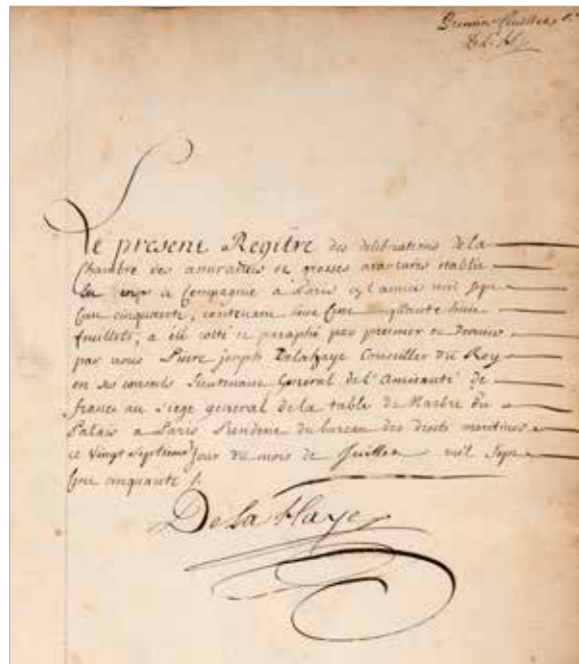 Premier feuillet
D. L. H.
Le present Regître des deliberations de la
Chambre des assurances et grosses avantures etablie
en Compagnie à Paris cy l'année mil sept
Cent cinquante, contenant Cent Cinquante huit
feuillets, a été cotté et paraphé par premier et Dernier
par nous Pierre joseph Delahaye Conseiller du Roy
en ses conseils Lieutenant General de l'Amirauté de
france au siege general de la table de Marbre du
Palais a Paris President du bureau des droits maritimes
ce Vingt Septieme Jour du mois de Juillet mil Sept
Cent cinquante /.
De la Haye